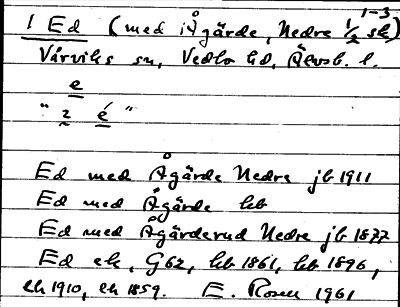 1-3
1 Ed (med Ågärde, Nedre 1/2 sk)
Vårviks sn, Vedbo hd, Älvsb. l.
e
" 2 é "
Ed med Ågärde Nedre jb 1911
Ed med Ågärde hb
Ed med Ågärderud Nedre jb 1877
Ed ek, G62, hb 1861, hb 1896,
ek 1910, ek 1859. E. Rosen 1961